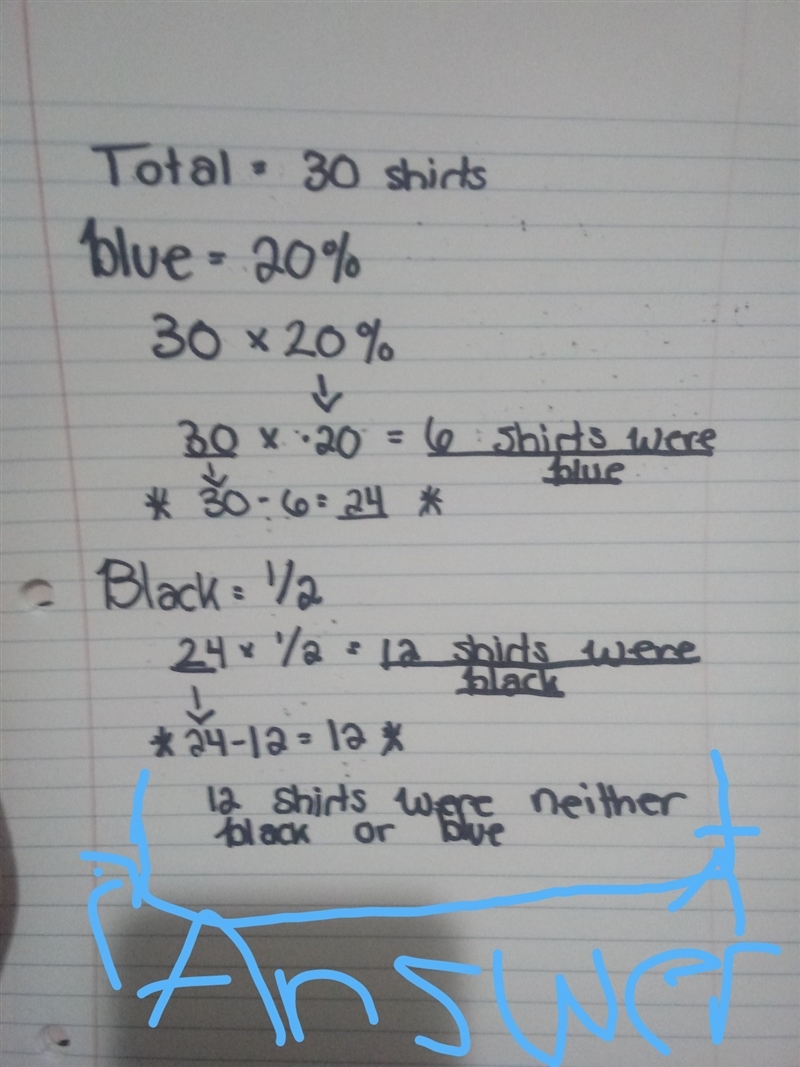 Total = 30 shirts
blue = 20%
30 × 20%
↓
30 × .20 = 6 shirts were
blue
↓
* 30 - 6 = 24 *
Black = 1/2
24 × 1/2 = 12 shirts were
black
↓
* 24 - 12 = 12 *
12 shirts were neither
black or blue
Answer